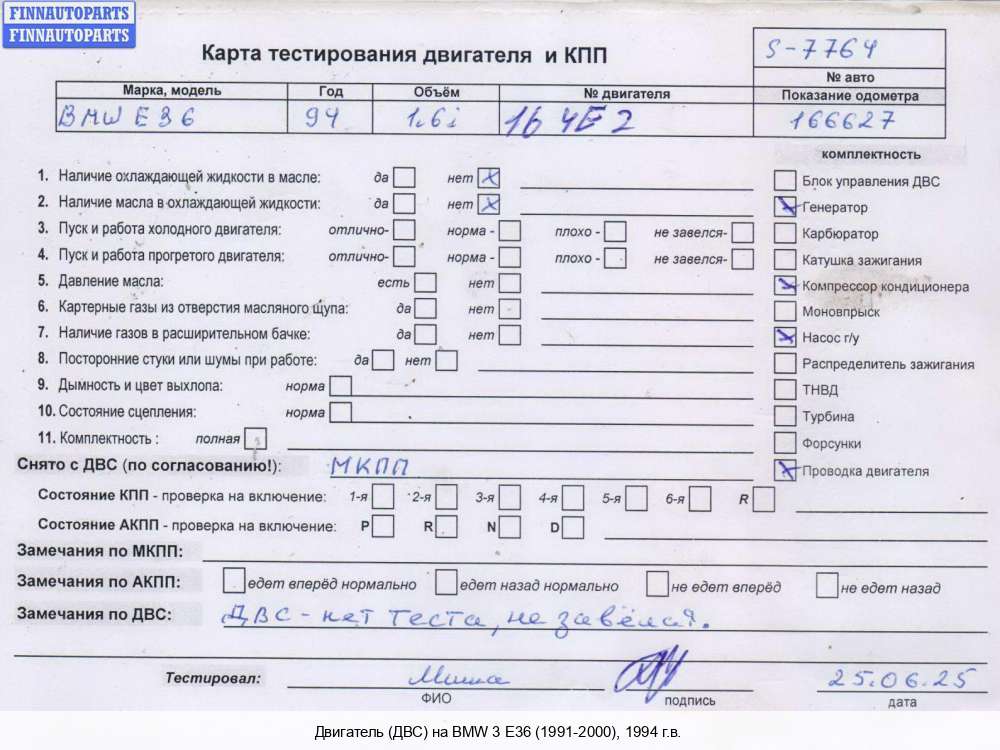 FINNAUTOPARTS
FINNAUTOPARTS
Карта тестирования двигателя и КПП
S-7764
№ авто
Марка, модель Год Объём № двигателя Показание одометра
BMW E36 94 1.6i 164E2 166627
комплектность
1. Наличие охлаждающей жидкости в масле: да нет Блок управления ДВС
2. Наличие масла в охлаждающей жидкости: да нет Генератор
3. Пуск и работа холодного двигателя: отлично- норма - плохо - не завелся- Карбюратор
4. Пуск и работа прогретого двигателя: отлично- норма - плохо - не завелся- Катушка зажигания
5. Давление масла: есть нет Компрессор кондиционера
6. Картерные газы из отверстия масляного щупа: да нет Моновпрыск
7. Наличие газов в расширительном бачке: да нет Насос г/у
8. Посторонние стуки или шумы при работе: да нет Распределитель зажигания
9. Дымность и цвет выхлопа: норма ТНВД
10. Состояние сцепления: норма Турбина
11. Комплектность : полная Форсунки
Снято с ДВС (по согласованию!): МКПП Проводка двигателя
Состояние КПП - проверка на включение: 1-я 2-я 3-я 4-я 5-я 6-я R
Состояние АКПП - проверка на включение: P R N D
Замечания по МКПП:
Замечания по АКПП: едет вперёд нормально едет назад нормально не едет вперёд не едет назад
Замечания по ДВС: ДВС - нет теста, не завёлся.
Тестировал: Миша 25.06.25
ФИО подпись дата
Двигатель (ДВС) на BMW 3 E36 (1991-2000), 1994 г.в.